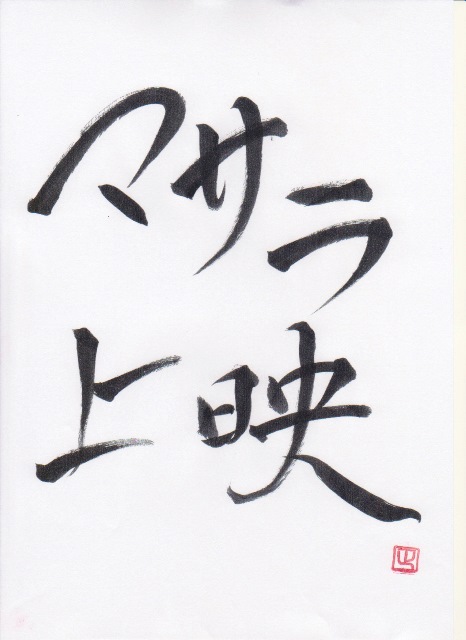 マサラ
上映